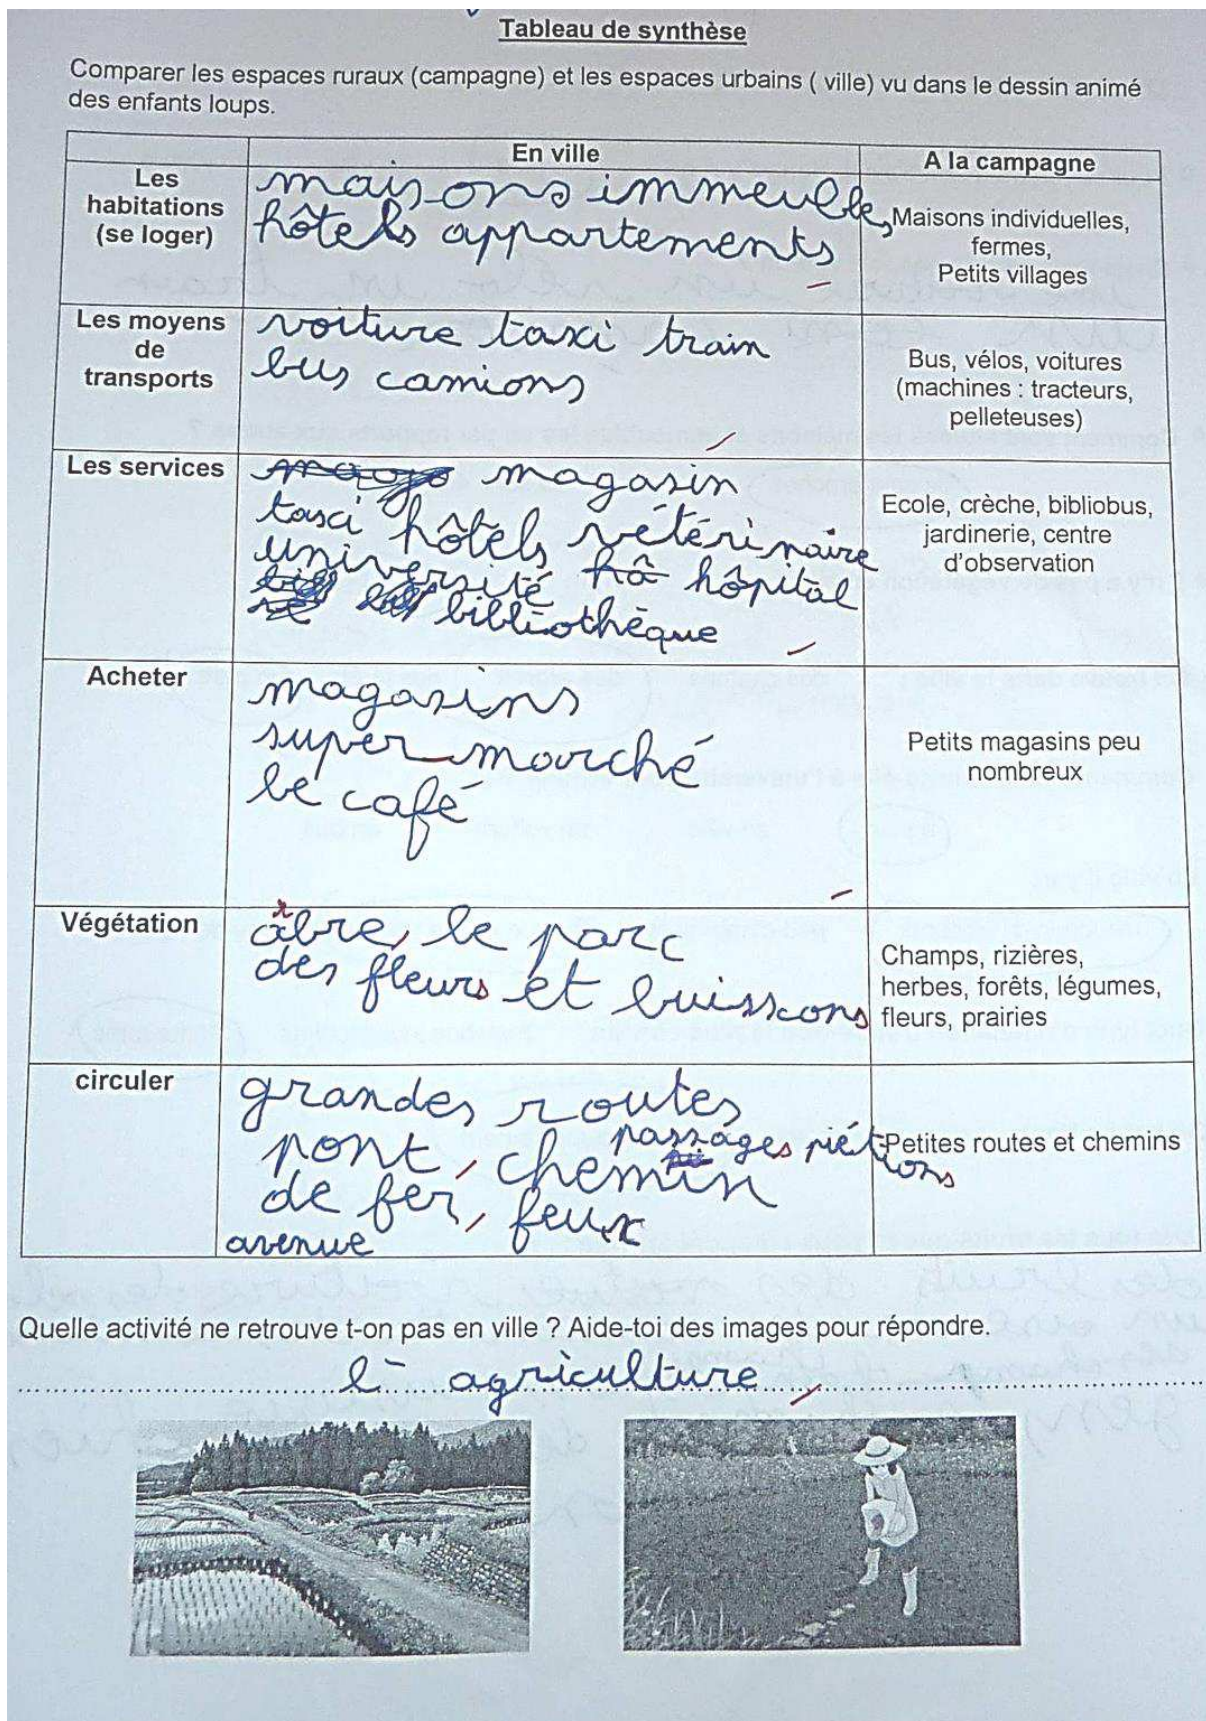 Tableau de synthèse
Comparer les espaces ruraux (campagne) et les espaces urbains ( ville) vu dans le dessin animé
des enfants loups.
En ville
A la campagne
Les
habitations
(se loger)
maisons immeubles
hôtels appartements
Maisons individuelles,
fermes,
Petits villages
Les moyens
de
transports
voiture taxi train
bus camions
Bus, vélos, voitures
(machines : tracteurs,
pelleteuses)
Les services
magasin
taxi hôtels vétérinaire
université hô hôpital
bibliothèque
Ecole, crèche, bibliobus,
jardinerie, centre
d'observation
Acheter
magasins
super marché
le café
Petits magasins peu
nombreux
Végétation
r
âbre, le parc
des fleurs et buissons
Champs, rizières,
herbes, forêts, légumes,
fleurs, prairies
circuler
grandes routes
passages piétions
pont, chemin
de fer, feux
avenue
Petites routes et chemins
Quelle activité ne retrouve t-on pas en ville ? Aide-toi des images pour répondre.
l'agriculture